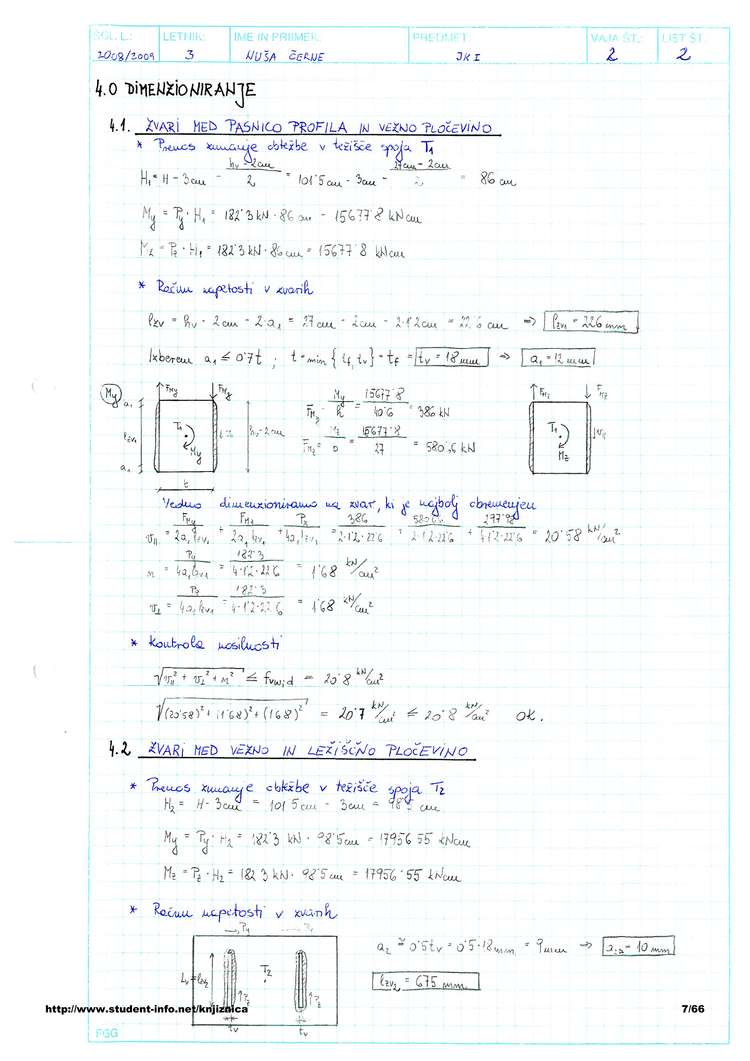 ŠOL. L.: LETNIK: IME IN PRIIMEK: PREDMET: VAJA ŠT.: LIST ŠT.
2008/2009 3 NUŠA ČERNE JK I 2 2
4.0 DIMENZIONIRANJE
4.1. ZVARI MED PASNICO PROFILA IN VEZNO PLOČEVINO
* Prenos zunanje obtežbe v težišče spoja T1
H1 = H - 3cm - (hv - 2cm)/2 = 101'5cm - 3cm - (27cm - 2cm)/2 = 86 cm
My = Py · H1 = 182'3 kN · 86 cm = 15677'8 kNcm
Mz = Pz · H1 = 182'3 kN · 86 cm = 15677'8 kNcm
* Račun napetosti v zvarih
lzv = hv - 2cm - 2·a1 = 27cm - 2cm - 2·1'2cm = 22'6 cm ⇒ lzv1 = 226 mm
Izberem a1 ≤ 0'7t ; t = min { tf, tv } = tf = tv = 18 mm ⇒ a1 = 12 mm
My FMy FMy FMz FMz
a1 lzv1 a1 T1 My hv-2cm t T1 Mz
FMy = My/h = 15677'8/40'6 = 386 kN
FMz = Mz/b = 15677'8/27 = 580'66 kN
Vedno dimenzioniramo na zvar, ki je najbolj obremenjen
= 20'58 kN/cm²
n = Py/4a1lzv1 = 182'3/4·1'2·22'6 = 1'68 kN/cm²
v⊥ = Pz/4a1lzv1 = 182'3/4·1'2·22'6 = 1'68 kN/cm²
* Kontrola nosilnosti
√(v∥² + v⊥² + n²) ≤ fvw,d = 20'8 kN/cm²
√((20'58)² + (1'68)² + (1'68)²) = 20'7 kN/cm² ≤ 20'8 kN/cm² OK.
4.2 ZVARI MED VEZNO IN LEŽIŠČNO PLOČEVINO
* Prenos zunanje obtežbe v težišče spoja T2
H2 = H - 3cm = 101'5cm - 3cm = 98'5 cm
My = Py · H2 = 182'3 kN · 98'5cm = 17956'55 kNcm
Mz = Pz · H2 = 182'3 kN · 98'5cm = 17956'55 kNcm
* Račun napetosti v zvarih
Py Py
a2 ≅ 0'5tv = 0'5·18mm = 9mm ⇒ a2 = 10 mm
T2
lzv2 = 675 mm
Pz Pz
http://www.student-info.net/knjiznica 7/66
tv tv
FGG